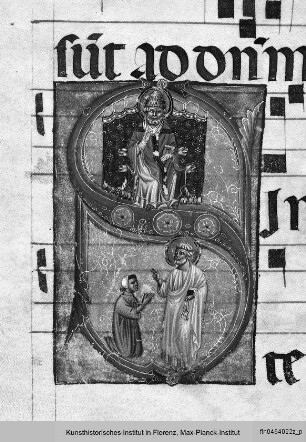 sūt ad dn̄m
S
In
te
Kunsthistorisches Institut in Florenz, Max-Planck-Institut fln0464022z_p